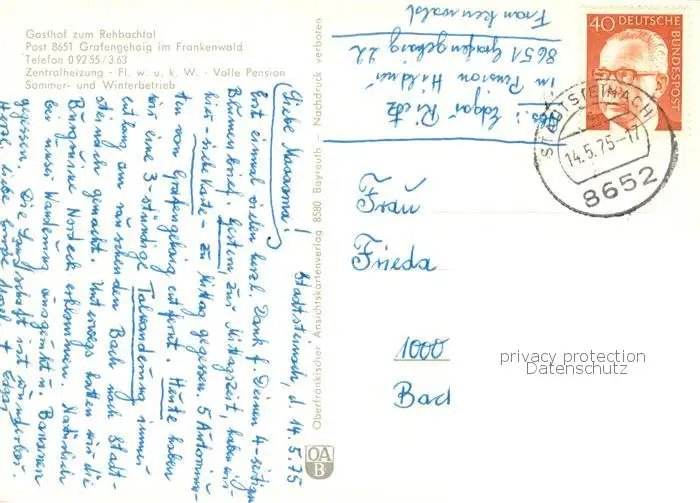 Gasthof zum Rehbachtal
Post 8651 Grafengehaig im Frankenwald
Telefon 0 92 55 / 3 63
Zentralheizung - Fl. w. u. k. W. - Volle Pension
Sommer- und Winterbetrieb
Stadtsteinach, d. 14.5.75
Liebe Mamama!
Erst einmal vielen herzl. Dank f. Deinen 4-seitigen
Blumenbrief. Gestern, zur Mittagszeit, haben wir
hier - siehe Karte - zu Mittag gegessen. 5 Autominu-
ten von Grafengehaig entfernt. Heute haben
wir eine 3-stündige Talwanderung immer
entlang am rauschenden Bach nach Stadt-
steinach gemacht. Unterwegs hatten wir die
Burgruine Nordeck erklommen. Natürlich
bei unser Wanderung ausgeruht u. Bananen
gegessen. Die Landschaft ist wunderbar.
Herzl. liebe Grüße + Edgar
Oberfränkischer Ansichtskartenverlag 8580 Bayreuth - Nachdruck verboten
OA
B
Abs.: Edgar Rietz
in Pension Hildner
8651 Grafengehaig 22
Frankenwald
40 DEUTSCHE
BUNDESPOST
STADTSTEINACH
14.5.75-17
8652
Frau
Frieda
1000
Bad
privacy protection
Datenschutz